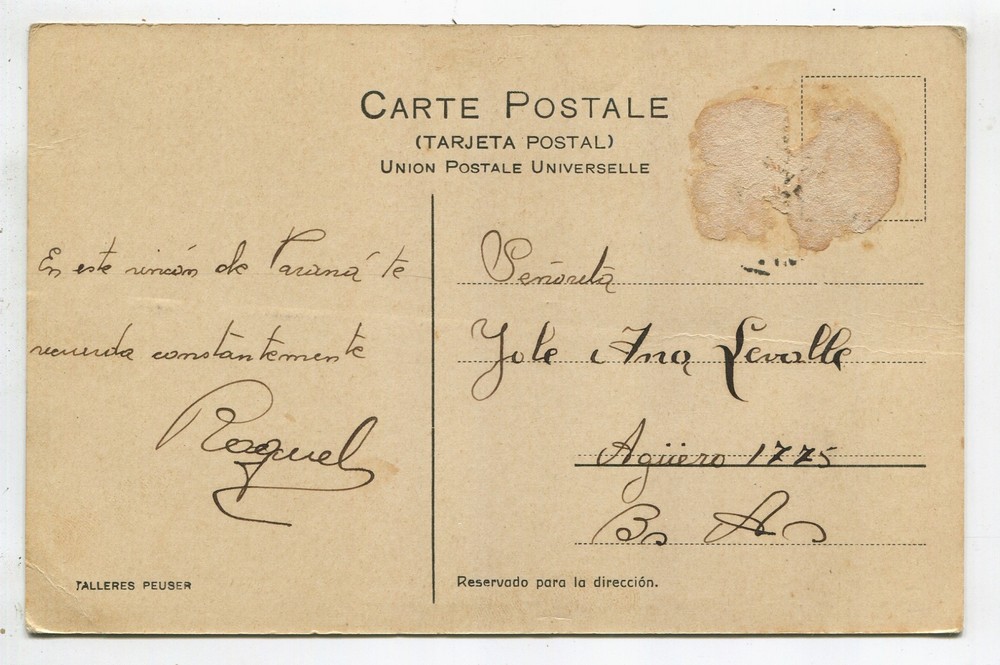 CARTE POSTALE
(TARJETA POSTAL)
UNION POSTALE UNIVERSELLE
En este rincón de Paraná te
recuerda constantemente
Raquel
TALLERES PEUSER
Señorita
Yole Ana Levalle
Agüero 1775
Bs As
Reservado para la dirección.